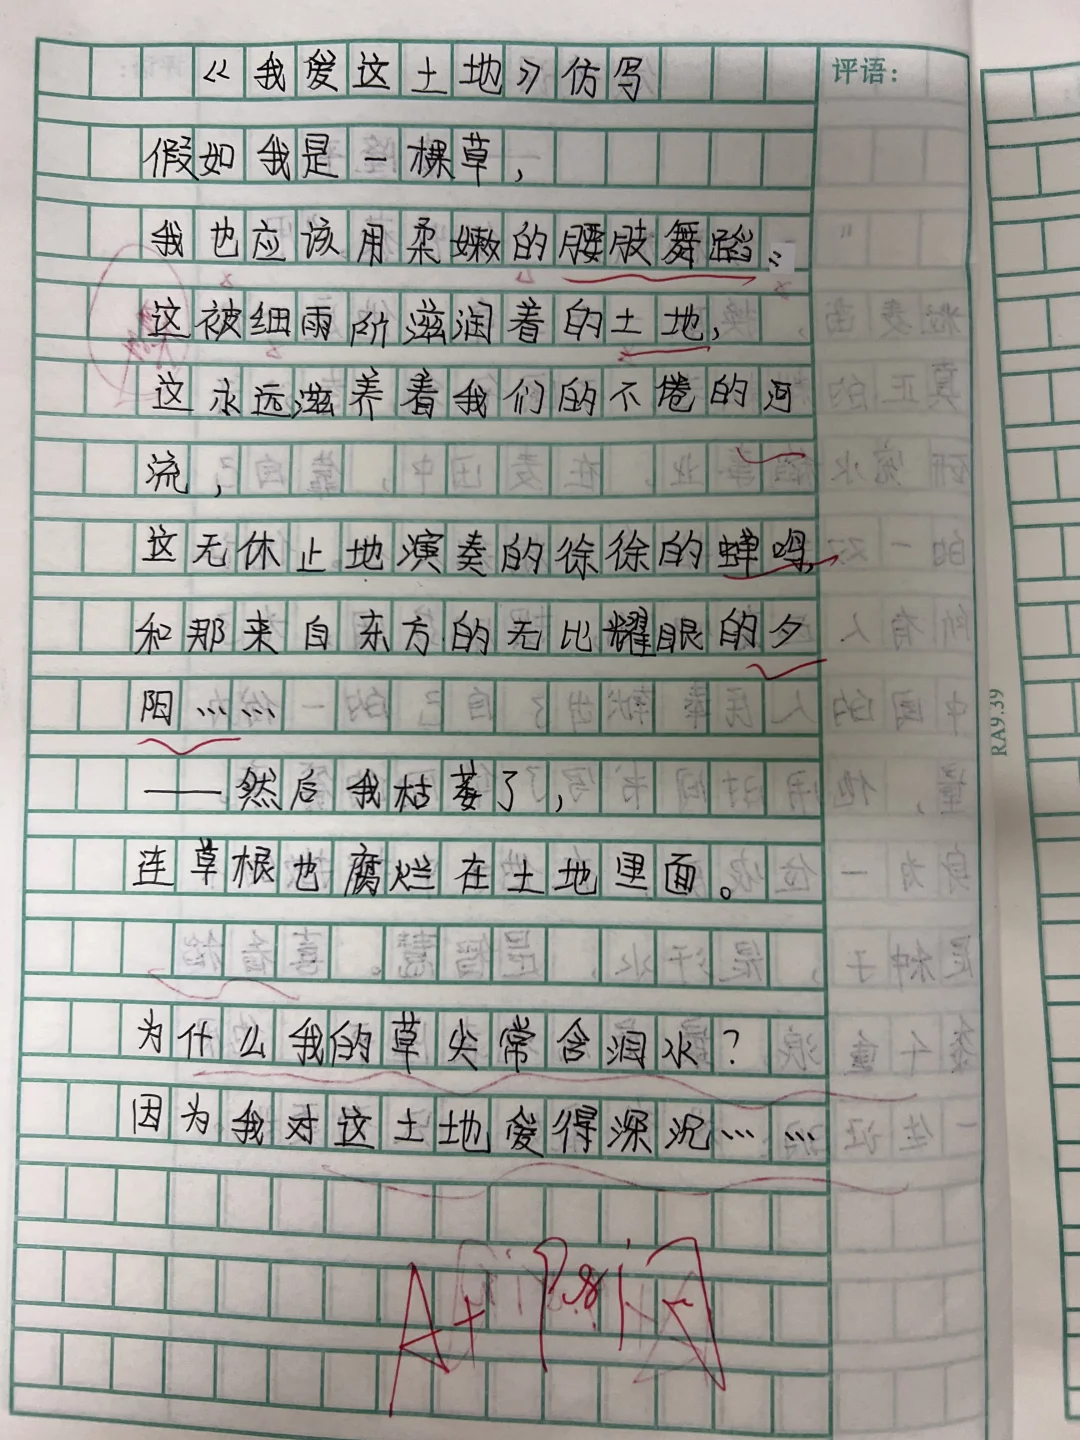 《我爱这土地》仿写
评语：
假如我是一棵草，
我也应该用柔嫩的腰肢舞蹈：
这被细雨所滋润着的土地，
这永远滋养着我们的不倦的河
流，
这无休止地演奏的徐徐的蝉鸣，
和那来自东方的无比耀眼的夕
阳……
——然后我枯萎了，
连草根也腐烂在土地里面。
为什么我的草尖常含泪水？
因为我对这土地爱得深沉……
A+
RA9.39